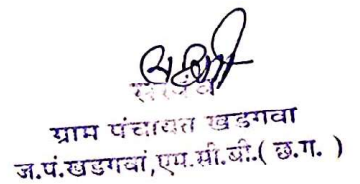 सरपंच
ग्राम पंचायत खडगवा
ज.पं.खडगवां,एम.सी.बी.( छ.ग. )